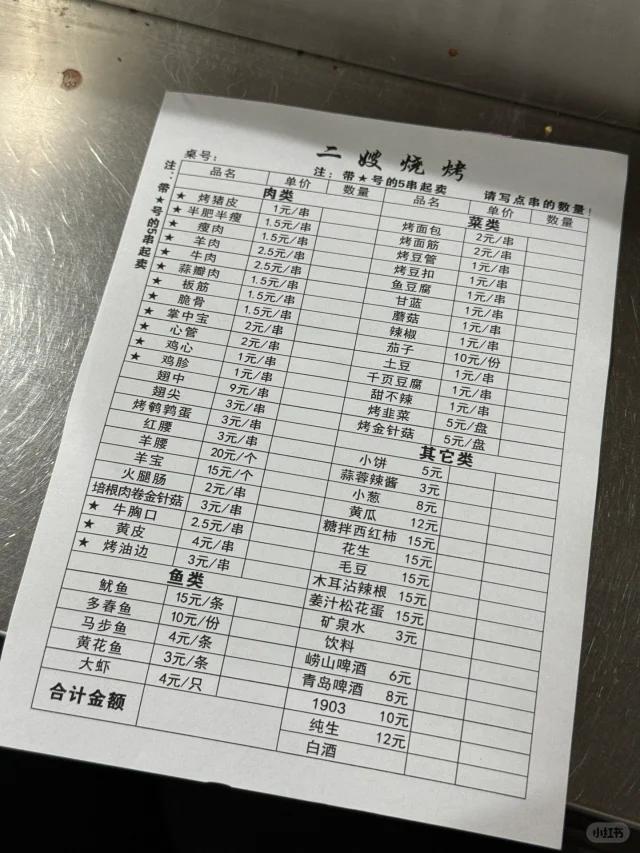 二嫂烧烤
桌号：
注：带★号的5串起卖
请写点串的数量！
注：带★号的5串起卖
品名 单价 数量
肉类
★ 烤猪皮 1元/串
★ 半肥半瘦 1.5元/串
★ 瘦肉 1.5元/串
★ 羊肉 2.5元/串
★ 牛肉 2.5元/串
★ 蒜瓣肉 1.5元/串
★ 板筋 1.5元/串
★ 脆骨 1.5元/串
★ 掌中宝 2元/串
★ 心管 2元/串
★ 鸡心 1元/串
★ 鸡胗 1元/串
翅中 9元/串
翅尖 3元/串
烤鹌鹑蛋 3元/串
红腰 3元/串
羊腰 20元/个
羊宝 15元/个
火腿肠 2元/串
培根肉卷金针菇 3元/串
★ 牛胸口 2.5元/串
★ 黄皮 4元/串
★ 烤油边 3元/串
鱼类
鱿鱼 15元/条
多春鱼 10元/份
马步鱼 4元/条
黄花鱼 3元/条
大虾 4元/只
合计金额
品名 单价 数量
菜类
烤面包 2元/串
烤面筋 2元/串
烤豆管 1元/串
烤豆扣 1元/串
鱼豆腐 1元/串
甘蓝 1元/串
蘑菇 1元/串
辣椒 1元/串
茄子 10元/份
土豆 1元/串
千页豆腐 1元/串
甜不辣 1元/串
烤韭菜 5元/盘
烤金针菇 5元/盘
其它类
小饼 5元
蒜蓉辣酱 3元
小葱 8元
黄瓜 12元
糖拌西红柿 15元
花生 15元
毛豆 15元
木耳沾辣根 15元
姜汁松花蛋 15元
矿泉水 3元
饮料
崂山啤酒 6元
青岛啤酒 8元
1903 10元
纯生 12元
白酒
小红书